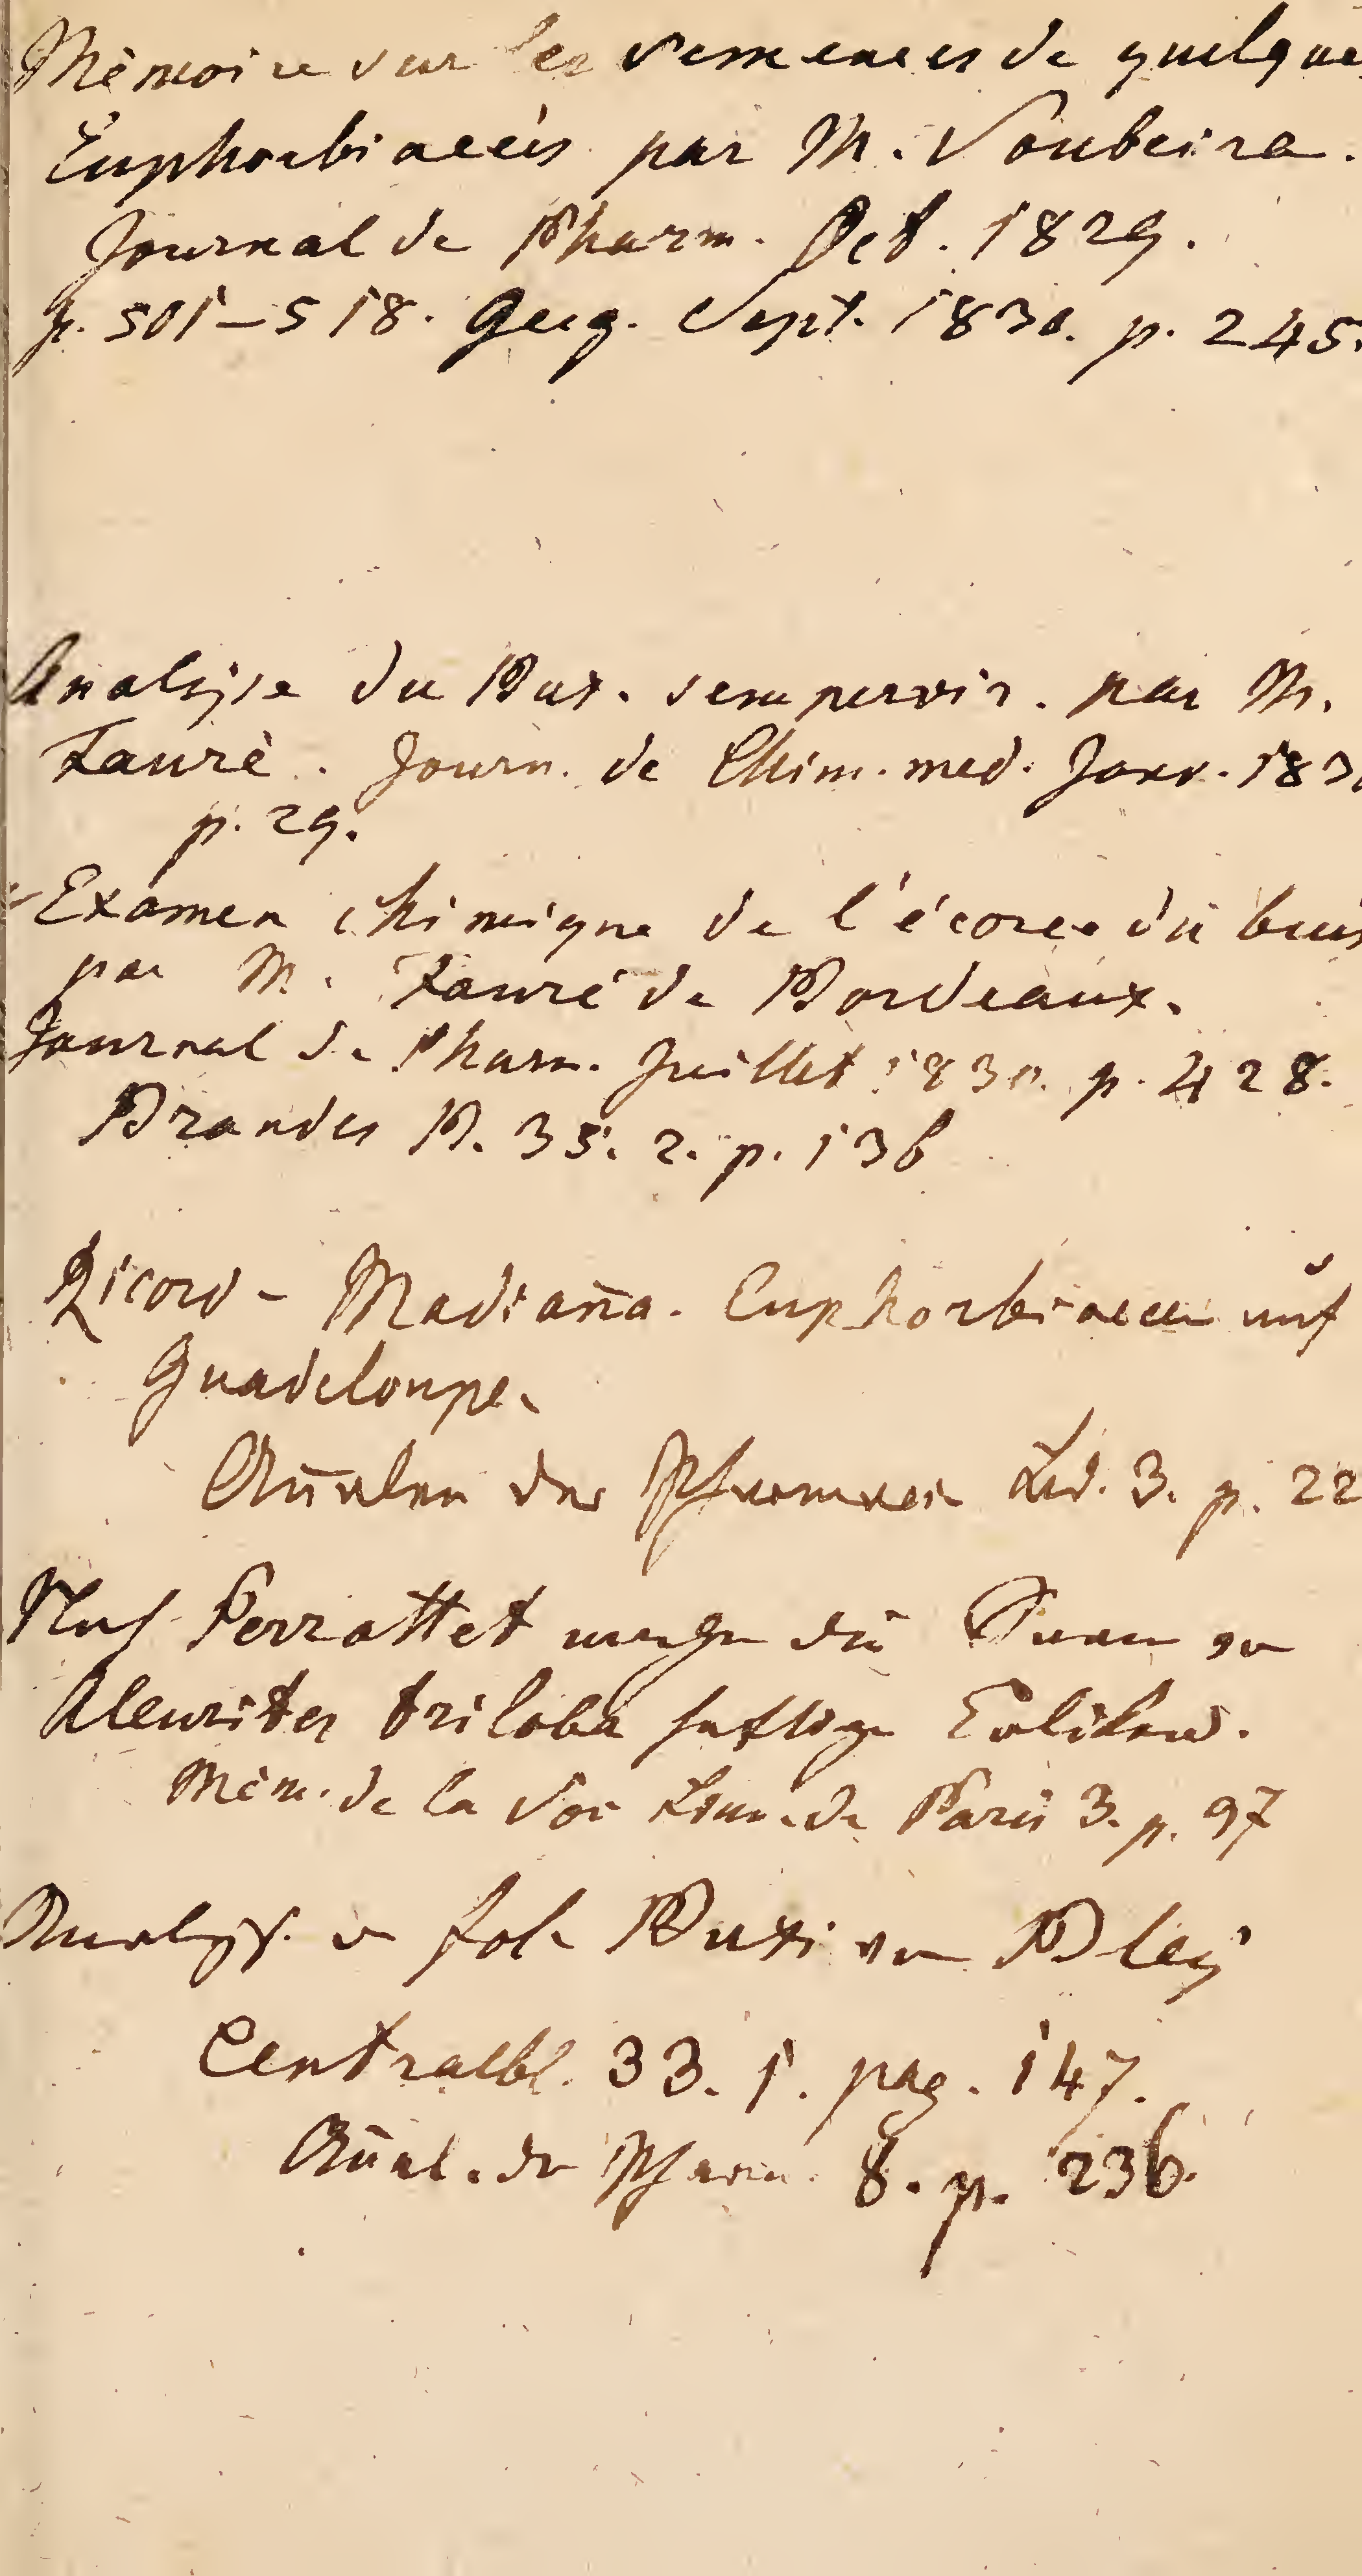 Mémoire sur les semences de quelques
Euphorbiacées par M. Soubeira.
Journal de Pharm. Oct. 1829.
p. 501–518. Geig. Sept. 1830. p. 245.
Analyse du Bux. sempervir. par M.
Fauré. Journ. de Chim. med. Janv. 183
p. 29.
Examen chimique de l'écorce du buis
par M. Fauré de Bordeaux.
Journal de Pharm. Juillet 1830. p. 428.
Brandes A. 35. 2. p. 136
Ricord - Madiana. Euphorbiaceen auf
Guadeloupe.
Annalen der Pharmacie Bd. 3. p. 22
Nach Perrottet die Samen von
Aleurites triloba heftige Coliken.
Mém. de la Soc Linn. de Paris 3. p. 97
Analys. d fol. Buxi von Bley
Centralbl. 33. 1. pag. 147.
Annal. der Pharm. 8. p. 236.